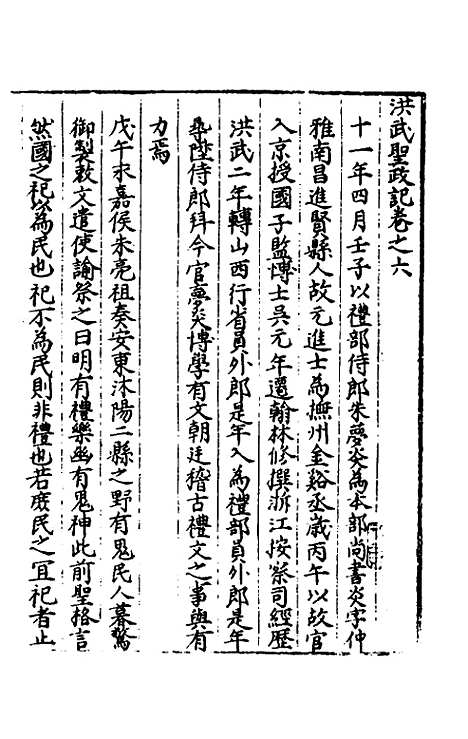 洪武聖政記卷之六
十一年四月壬子以禮部侍郎朱夢炎為本部尚書炎字仲
雅南昌進賢縣人故元進士為撫州金谿丞歲丙午以故官
入京授國子監博士吳元年遷翰林修撰浙江按察司經歷
洪武二年轉山西行省員外郎是年入為禮部員外郎是年
尋陞侍郎拜今官夢炎博學有文朝廷稽古禮文之事與有
力焉
戊午永嘉侯朱亮祖奏安東沭陽二縣之野有鬼民人暮驚
御製敕文遣使諭祭之曰明有禮樂幽有鬼神此前聖格言
然國之祀以為民也祀不為民則非禮也若庶民之宜祀者止